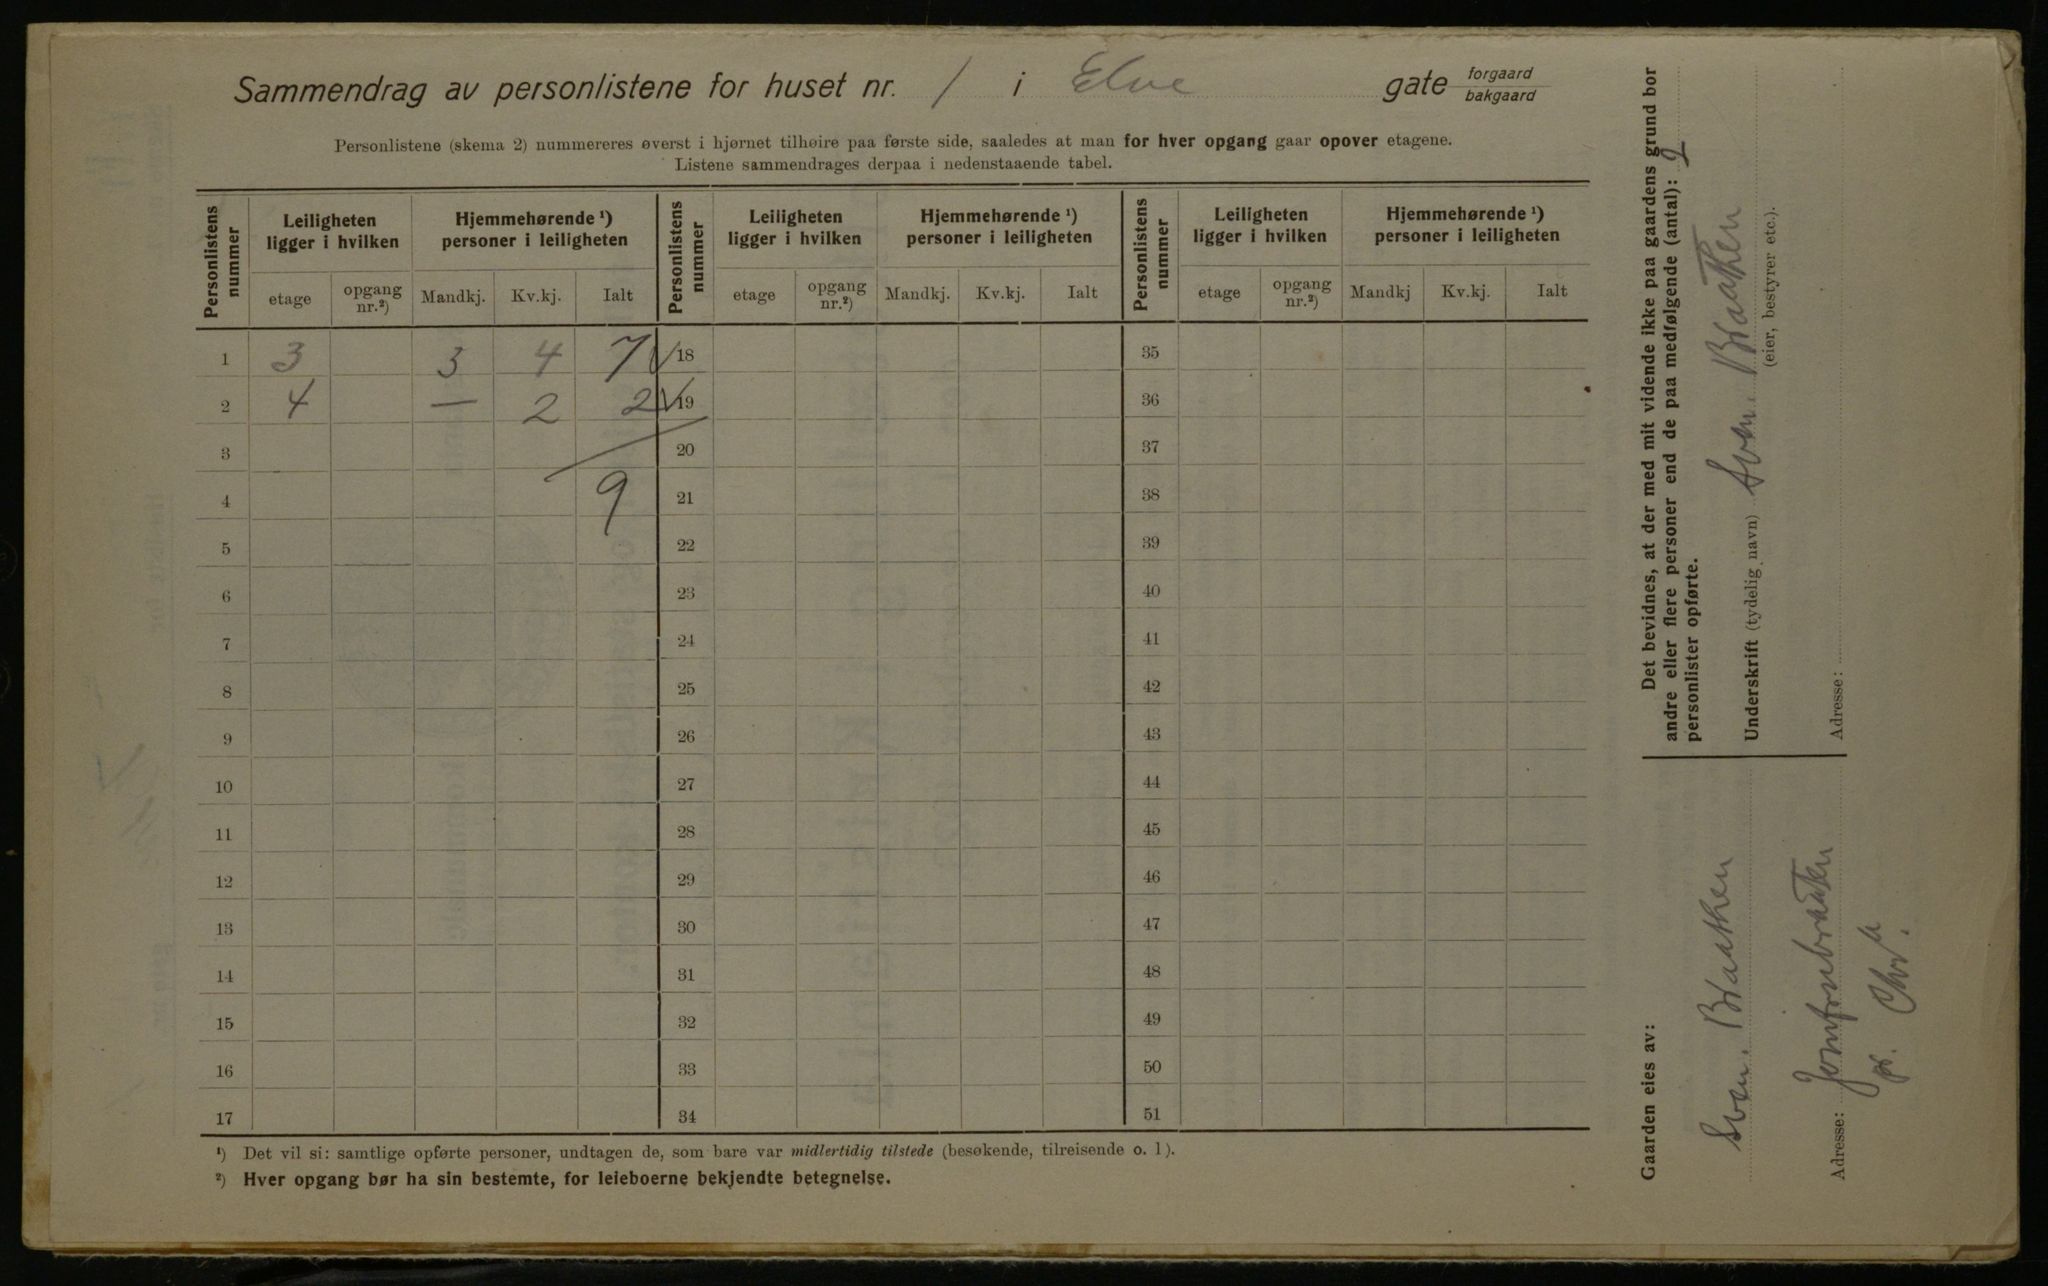 Sammendrag av personlistene for huset nr. 1 i Elve gate forgaard bakgaard
Personlistene (skema 2) nummereres øverst i hjørnet tilhøire paa første side, saaledes at man for hver opgang gaar opover etagene.
Listene sammendrages derpaa i nedenstaaende tabel.
Personlistens nummer Leiligheten ligger i hvilken Hjemmehørende ¹) personer i leiligheten Personlistens nummer Leiligheten ligger i hvilken Hjemmehørende ¹) personer i leiligheten Personlistens nummer Leiligheten ligger i hvilken Hjemmehørende ¹) personer i leiligheten
etage opgang nr.²) Mandkj. Kv.kj. Ialt etage opgang nr.²) Mandkj. Kv.kj. Ialt etage opgang nr.²) Mandkj Kv.kj. Ialt
1 3 3 4 7 √ 18 35
2 4 — 2 2 √ 19 36
3 20 37
4 9 21 38
5 22 39
6 23 40
7 24 41
8 25 42
9 26 43
10 27 44
11 28 45
12 29 46
13 30 47
14 31 48
15 32 49
16 33 50
17 34 51
¹) Det vil si: samtlige opførte personer, undtagen de, som bare var midlertidig tilstede (besøkende, tilreisende o. l).
²) Hver opgang bør ha sin bestemte, for leieboerne bekjendte betegnelse.
Det bevidnes, at der med mit vidende ikke paa gaardens grund bor
andre eller flere personer end de paa medfølgende (antal): 2
personlister opførte.
Underskrift (tydelig navn) Sven. Braathen
(eier, bestyrer etc.).
Adresse:
Gaarden eies av:
Sven. Braathen
Adresse: Jomfrubraaten
pr. Chr.a